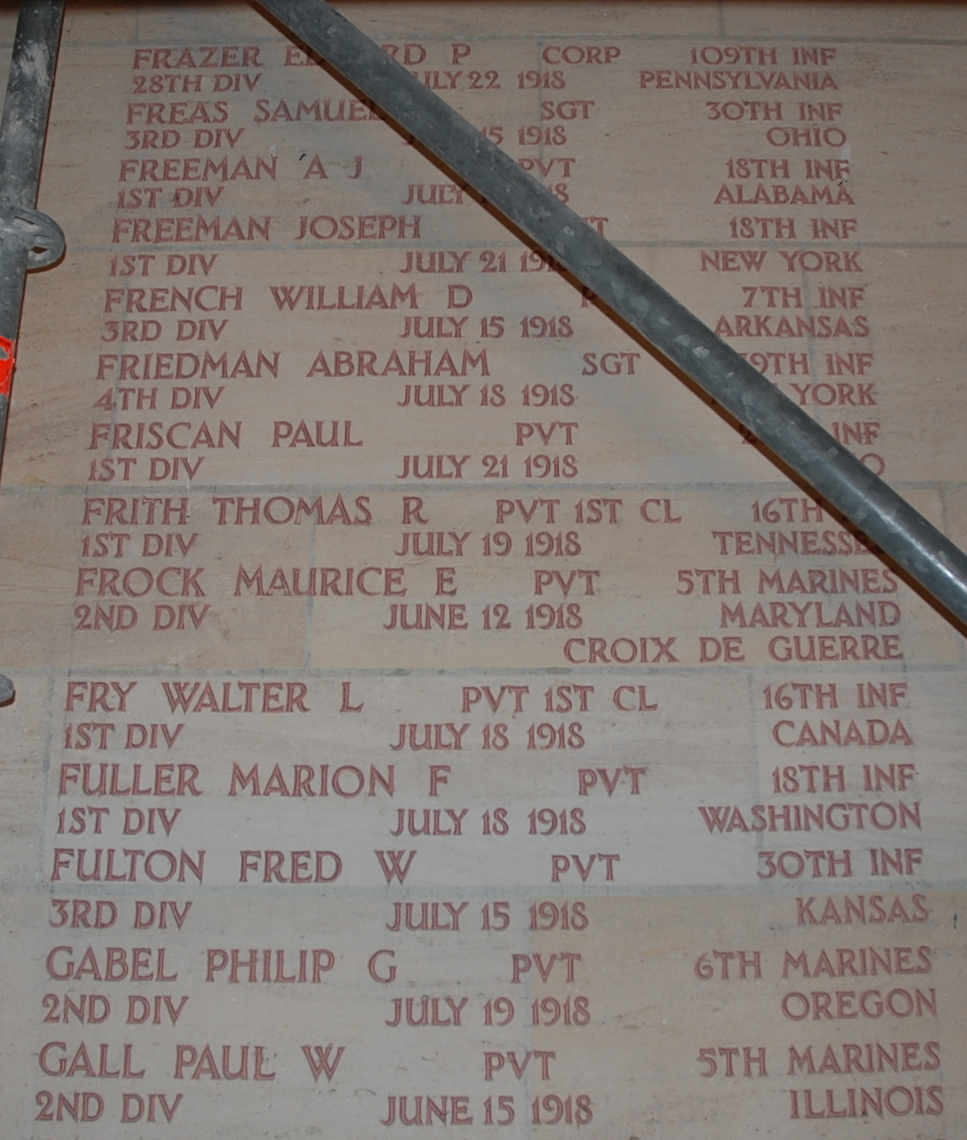 FRAZER P CORP 109TH INF
28TH DIV JULY 22 1918 PENNSYLVANIA
FREAS SAMUEL SGT 30TH INF
3RD DIV 1918 OHIO
FREEMAN A J PVT 18TH INF
1ST DIV JULY ALABAMA
FREEMAN JOSEPH 18TH INF
1ST DIV JULY 21 1918 NEW YORK
FRENCH WILLIAM D 7TH INF
3RD DIV JULY 15 1918 ARKANSAS
FRIEDMAN ABRAHAM SGT INF
4TH DIV JULY 18 1918 YORK
FRISCAN PAUL PVT INF
1ST DIV JULY 21 1918
FRITH THOMAS R PVT 1ST CL 16TH
1ST DIV JULY 19 1918 TENNESSEE
FROCK MAURICE E PVT 5TH MARINES
2ND DIV JUNE 12 1918 MARYLAND
CROIX DE GUERRE
FRY WALTER L PVT 1ST CL 16TH INF
1ST DIV JULY 18 1918 CANADA
FULLER MARION F PVT 18TH INF
1ST DIV JULY 18 1918 WASHINGTON
FULTON FRED W PVT 30TH INF
3RD DIV JULY 15 1918 KANSAS
GABEL PHILIP G PVT 6TH MARINES
2ND DIV JULY 19 1918 OREGON
GALL PAUL W PVT 5TH MARINES
2ND DIV JUNE 15 1918 ILLINOIS